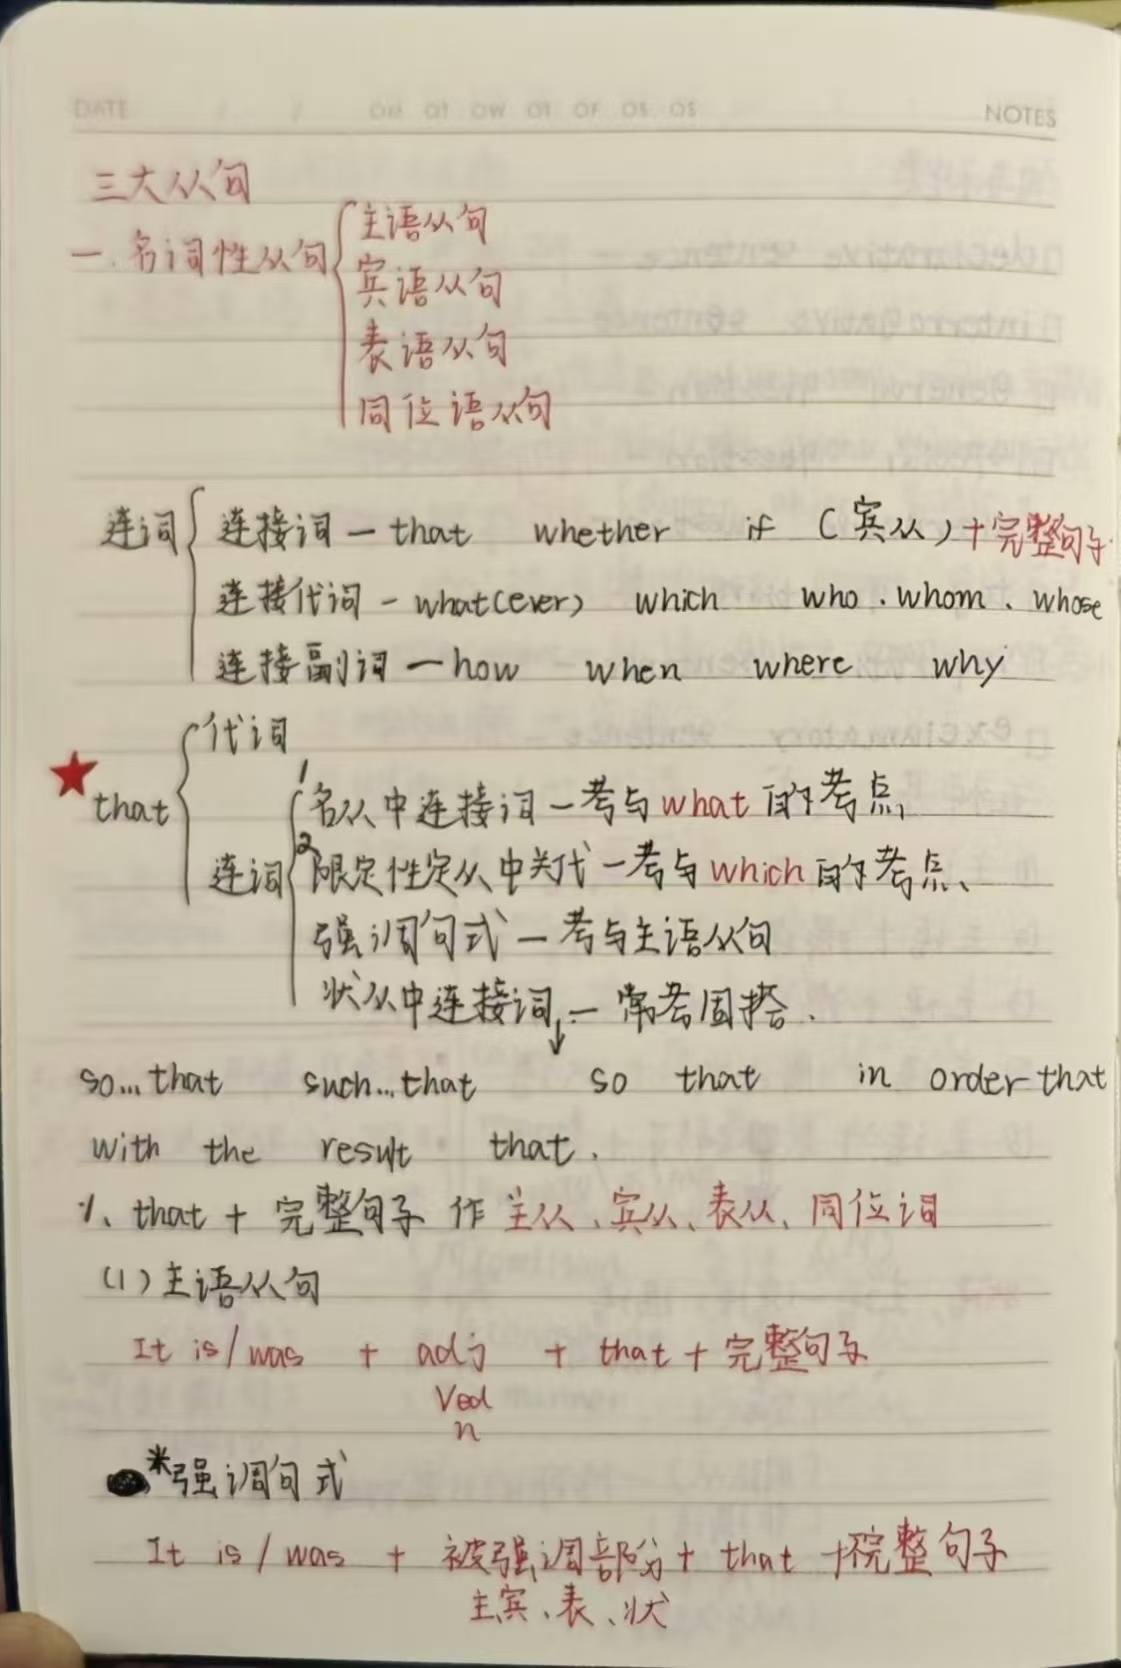 DATE
MO TU WE TH FR SA SU
NOTES
三大从句
一.名词性从句
主语从句
宾语从句
表语从句
同位语从句
连词
连接词 — that whether if (宾从)+完整句子
连接代词 - what(ever) which who.whom、whose
连接副词 — how when where why
★ that
代词
连词
1 名从中连接词 — 考与what的考点
2 限定性定从中关代 — 考与which的考点、
强调句式 — 考与主语从句
状从中连接词 — 常考固搭.
so...that such...that so that in order that
with the result that.
1、that + 完整句子 作 主从、宾从、表从、同位词
(1)主语从句
It is/was + adj + that + 完整句子
Ved
n
*强调句式
It is/was + 被强调部分 + that +完整句子
主宾、表、状